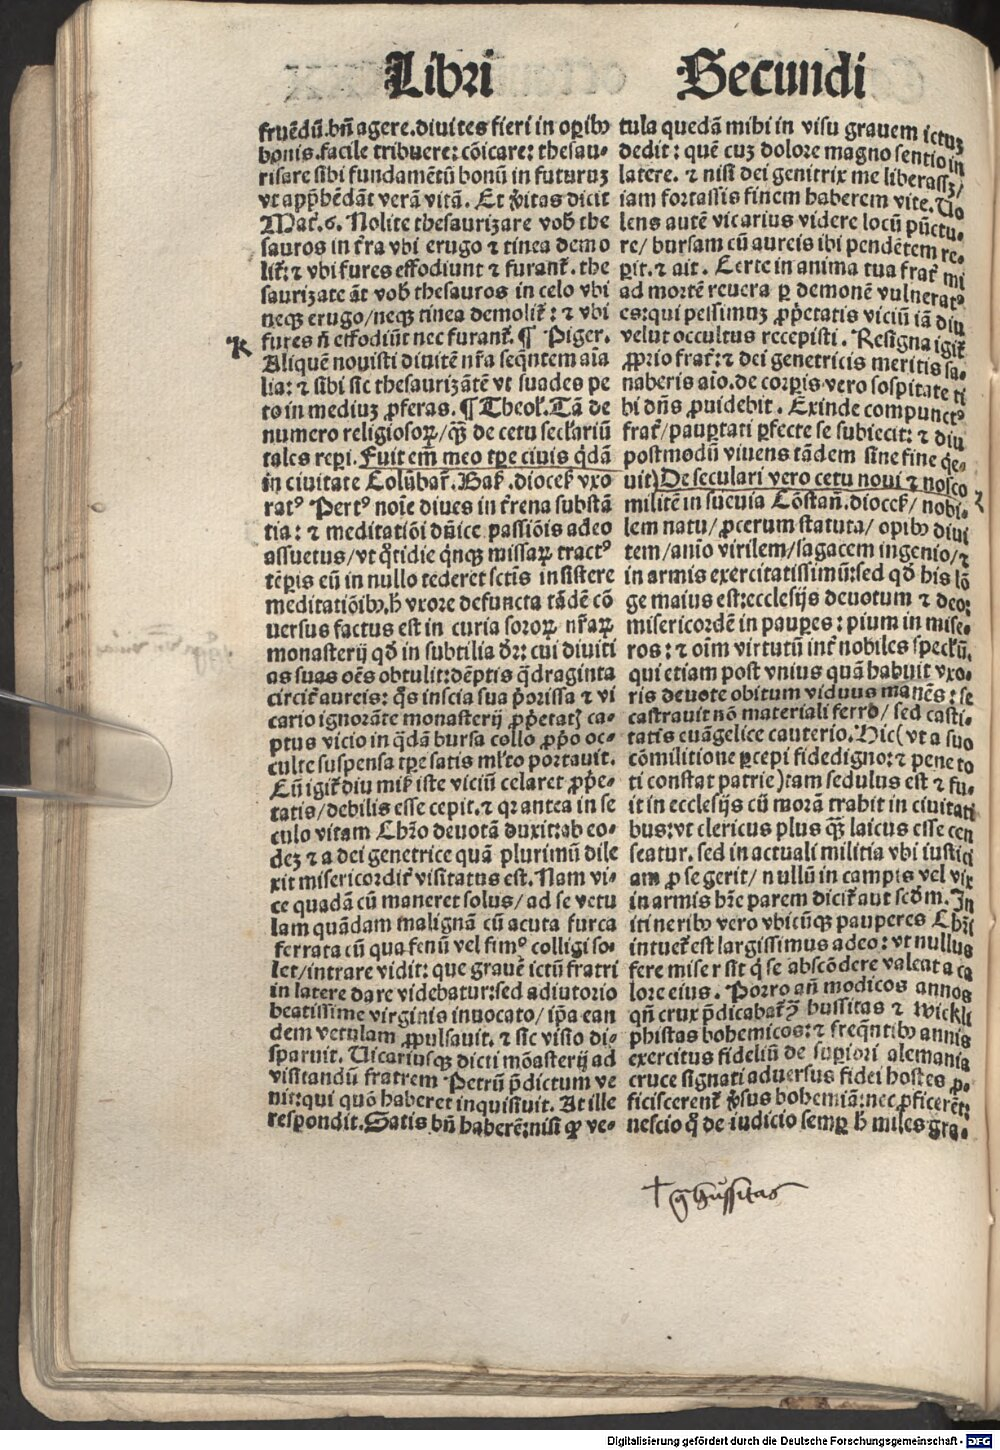 Libri Secundi
fruẽdũ.bñ agere.diuites fieri in oꝑibꝰ
bonis.facile tribuere: cõicare: thesau-
risare sibi fundamẽtũ bonũ in futuruꝫ
vt appħẽdãt verã vitã. Et v̾itas dicit
Mat̾.6. Nolite thesaurizare vob̾ the
sauros in t̾ra vbi erugo ⁊ tinea demo
lit̾: ⁊ vbi fures effodiunt ⁊ furant̾. the
saurizate ãt vob̾ thesauros in celo vbi
neqꝫ erugo/neqꝫ tinea demolit̾: ⁊ vbi
fures ñ effodiũt nec furant̾. ¶ Piger.
K
Aliquẽ nouisti diuitẽ nr̃a seq̃ntem aĩa
lia: ⁊ sibi sic thesaurizãtẽ vt suades pe
to in mediuꝫ ꝓferas. ¶ Theol̾. Tã de
numero religiosoꝝ/q̃ꝫ de cetu sećlariũ
tales reꝑi. Fuit em̃ meo tꝑe ciuis q̾dã
in ciuitate Colũbar̾. Baſ̾. dioceſ̾ vxo
ratꝰ Pertꝰ noĩe diues in t̾rena substã
tia: ⁊ meditatiõi dñice passiõis adeo
assuetus/vt q̃tidie q̾nqꝫ missaꝝ tractꝰ
tẽꝑis eũ in nullo tederet sc̃tis insistere
meditatiõibꝰ.ħ vxore defuncta tãdẽ cõ
uersus factus est in curia soroꝝ nr̃aꝝ
monasterij qd̾ in subtilia dr̃: cui diuiti
as suas oẽs obtulit:dẽptis q̃draginta
circit̾ aureis: q̾s inscia sua p̾orissa ⁊ vi
cario ignorãte monasterij ꝓp̾etatꝭ ca-
ptus vicio in q̃dã bursa collo ꝓp̾o oc-
culte suspensa tꝑe satis ml̾to portauit.
Cũ igit̾ diu miſ̾ iste viciũ celaret ꝓp̾e-
tatis/debilis esse cepit.⁊ qꝛ antea in se
culo vitam Chr̃o deuotã duxit:ab eo-
deꝫ ⁊ a dei genetrice quã plurimũ dile
xit misericordit̾ visitatus est. Nam vi-
ce quadã cũ maneret solus/ ad se vetu
lam quãndam malignã cũ acuta furca
ferrata cũ qua fenũ vel fimꝰ colligi so-
let/intrare vidit: que grauẽ ictũ fratri
in latere dare videbatur:sed adiutorio
beatissime virginis inuocato/ ip̃a ean
dem vetulam ꝓpulsauit. ⁊ sic visio di-
sparuit. Uicariusqꝫ dicti mõasterij ad
visitandũ fratrem Petrũ p̃dictum ve
nit:qui quõ haberet inquisiuit. At ille
respondit. Satis bñ haberẽ:nisi ꝙ ve-
tula quedã mihi in visu grauem ictuꝫ
dedit: quẽ cuꝫ dolore magno sentio in
latere. ⁊ nisi dei genitrix me liberassꝫ/
iam fortassis finem haberem vite. Uo
lens autẽ vicarius videre locũ pũctu-
re/ bursam cũ aureis ibi pendẽtem re-
ꝑit.⁊ ait. Certe in anima tua frat̾ mi
ad mortẽ reuera ꝑ demonẽ vulneratꝰ
es:qui pessimuꝫ ꝓp̾etatis viciũ iã diu
velut occultus recepisti. Resigna igit̾
ꝓprio frat̾: ⁊ dei genetricis meritis sa-
naberis aĩo.de corꝑis vero sospitate ti
bi dñs ꝓuidebit. Exinde compunctꝰ
frat̾/pauꝑtati ꝑfecte se subiecit: ⁊ diu
postmodũ viuens tãdem sine fine q̾e-
uit) De seculari vero cetu noui ⁊ nosco
l
militẽ in sueuia Cõstañ. dioceſ̾/ nobi-
lem natu/ ꝓcerum statuta/ opibꝰ diui
tem/anĩo virilem/sagacem ingenio/⁊
in armis exercitatissimũ:sed qd̾ his lõ
ge maius est:ecclesijs deuotum ⁊ deo:
misericordẽ in pauꝑes: pium in mise-
ros: ⁊ oĩm virtutũ int̾ nobiles specl̾ũ.
qui etiam post vnius quã habuit vxo-
ris deuote obitum viduus manẽs: se
castrauit nõ materiali ferro/ sed casti-
tatis euãgelice cauterio. Hic( vt a suo
cõmilitione ꝑcepi fidedigno: ⁊ pene to
ti constat patrie)tam sedulus est ⁊ fu-
it in ecclesijs cũ morã trahit in ciuitati
bus:vt clericus plus q̃ꝫ laicus esse cen
seatur. sed in actuali militia vbi iustici
am ꝓ se gerit/ nullũ in campis vel vix
in armis hr̃e parem dicit̾ aut scd̾m. In
itineribꝰ vero vbicũqꝫ pauperes Chr̃i
intuet̾ est largissimus adeo: vt nullus
fere miser sit q̾ se abscõdere valeat a ca
lore eius. Porro añ modicos annos
qñ crux p̃dicabat̾ ↄ̃ hussitas ⁊ wickli
phistas bohemicos: ⁊ freq̃ntibꝰ annis
exercitus fideliũ de suꝑiori alemania
cruce signati aduersus fidei hostes ꝓ-
ficiscerent̾ v̾sus bohemiã:nec ꝓficerẽt:
nescio q̊ dei iudicio semꝑ ħ miles gra-
† ↄ̃ hussitas
Digitalisierung gefördert durch die Deutsche Forschungsgemeinschaft - DFG